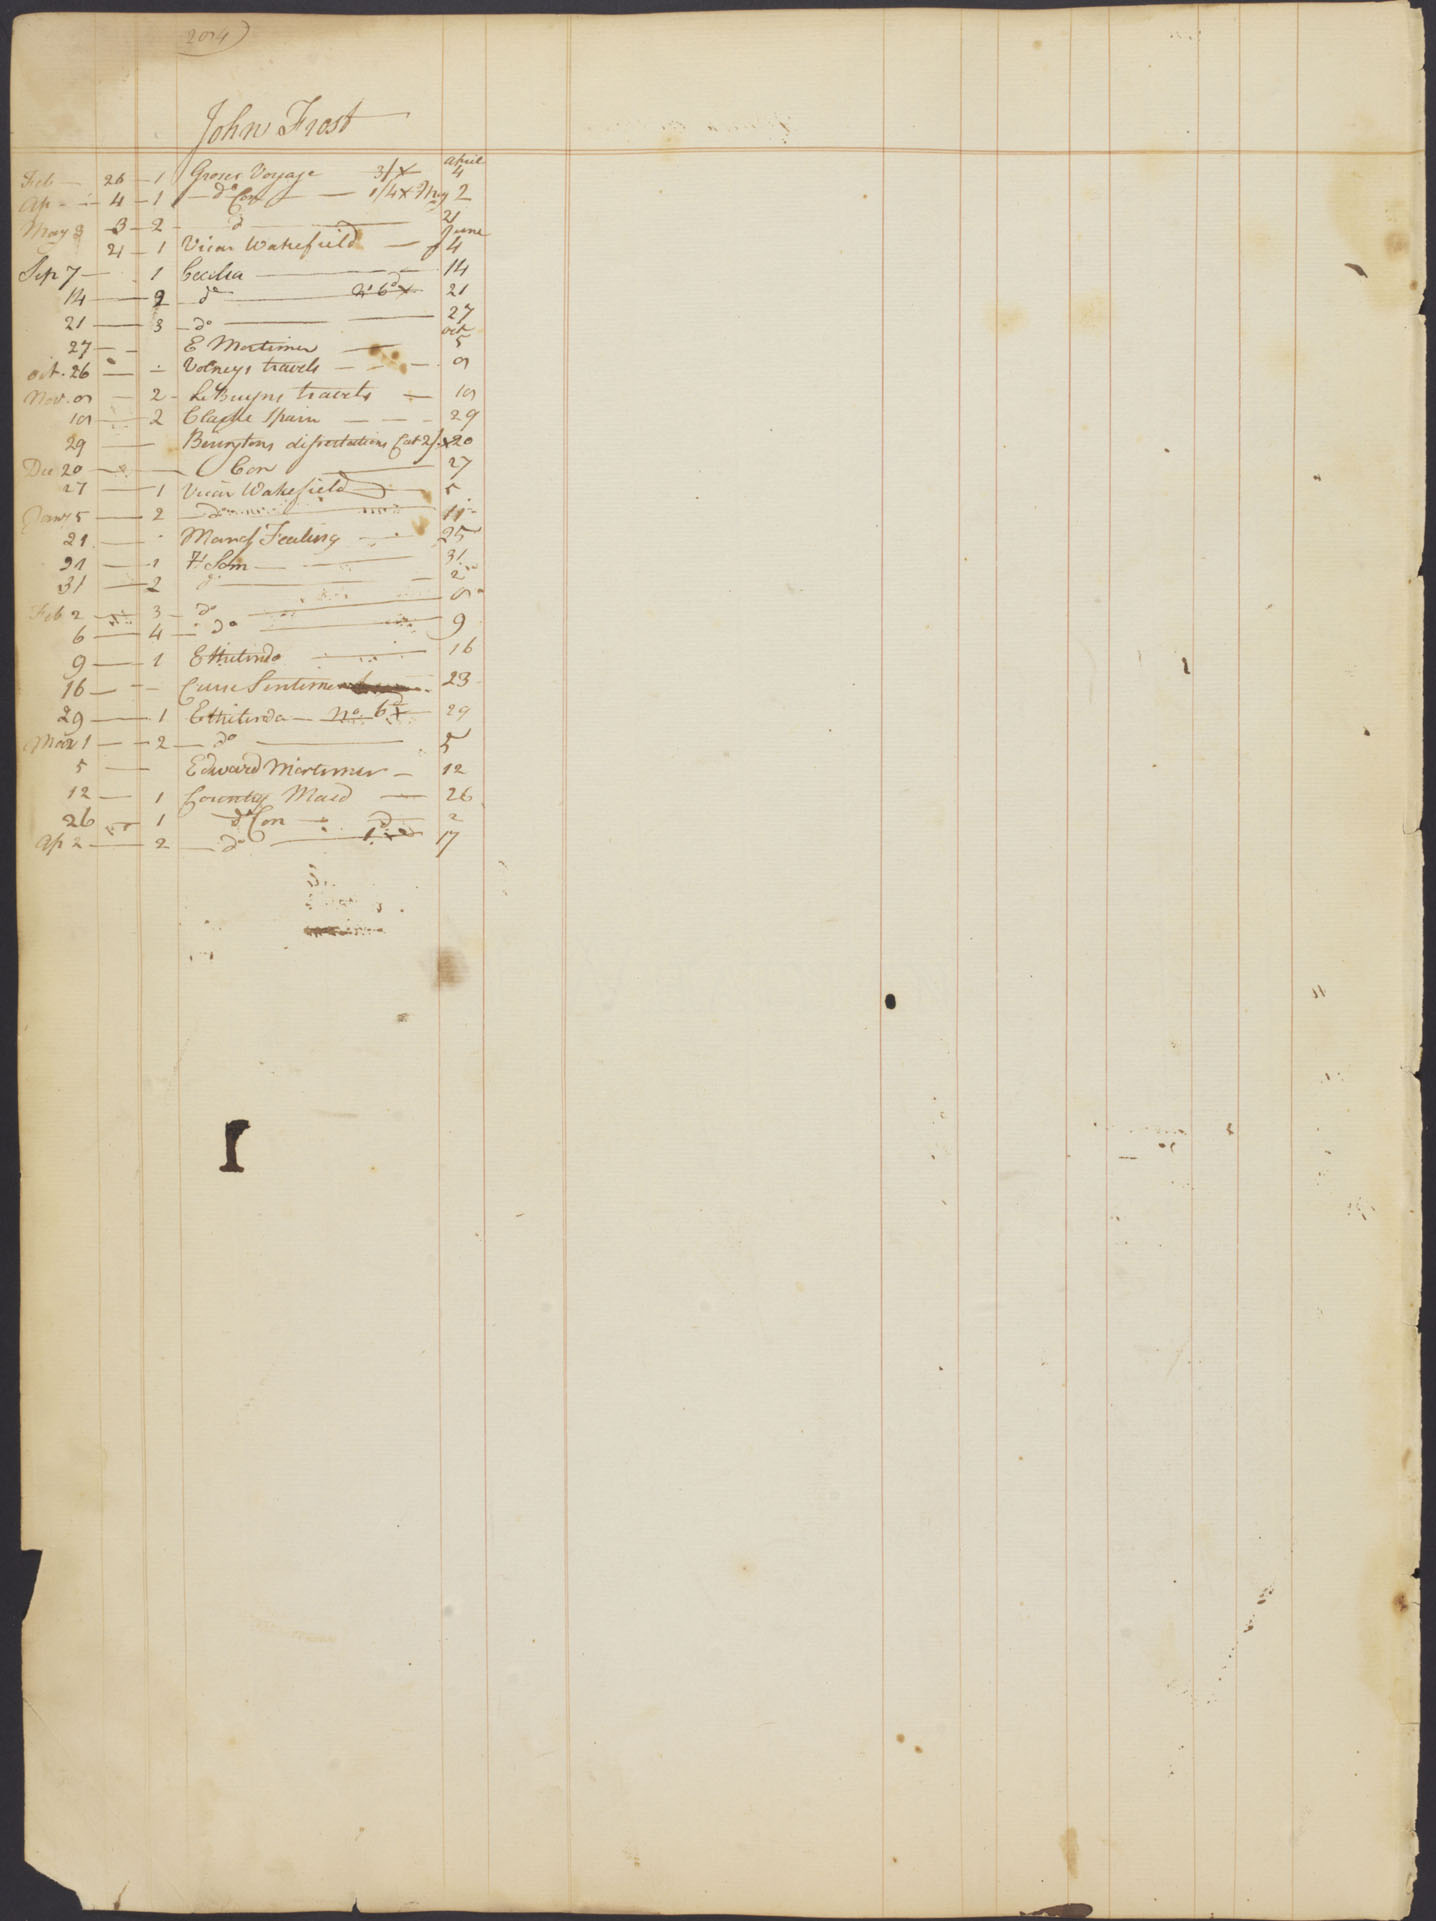 John Frost
Feb — 26 — 1 Groses Voyage 3/x April 4
Ap — 4 — 1 — do Con — 1/4 x May 2
May 3 — 2 — do — 21
21 — 1 Vicar Wakefield — June 4
Sep 7 — 1 Cecilia — 14
14 — 2 do — 2/6d x 21
21 — 3 — do — 27
27 — E Mortimer — oct 5
oct. 26 — Volneys travels — 9
Nov. 9 — 2 — Le Bruyns travels — 19
19 — 2 Clarke Spain — 29
29 — Beringtons dissertations Cat 2/. x 20
Dec 20 — Con — 27
27 — 1 Vicar Wakefield — 5
Jany 5 — 2 — do — 11
21 — Man of Feeling — 25
— 1 — 31
31 — 2 do — 2
Feb 2 — 3 — do —
6 — 4 — do — 9
9 — 1 Ethelinda — 16
16 — — 23
29 — 1 Ethelinda — no. 6d x — 29
Mar 1 — 2 — do — 5
5 — Edward Mortimer — 12
12 — 1 Country Maid — 26
26 — 1 — do Con — 2
Ap 2 — 2 — do — 17